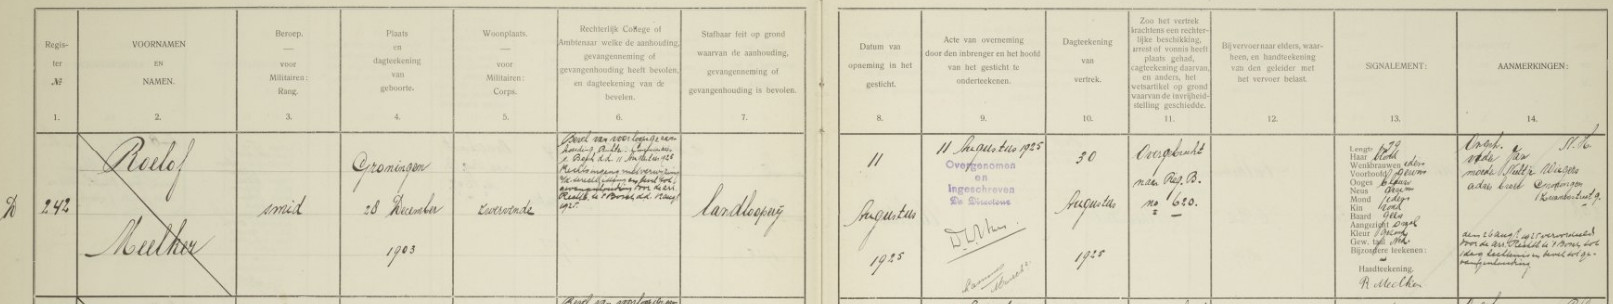 Regis-
ter
No
1.
VOORNAMEN
EN
NAMEN.
2.
Beroep.
—
voor
Militairen:
Rang.
3.
Plaats
en
dagteekening
van
geboorte.
4.
Woonplaats.
—
voor
Militairen:
Corps.
5.
Rechterlijk College of
Ambtenaar welke de aanhouding,
gevangenneming of
gevangenhouding heeft bevolen,
en dagteekening van de
bevelen.
6.
Stafbaar feit op grond
waarvan de aanhouding,
gevangenneming of
gevangenhouding is bevolen.
7.
Datum van
opneming in het
gesticht.
8.
Acte van overneming
door den inbrenger en het hoofd
van het gesticht te
onderteekenen.
9.
Dagteekening
van
vertrek.
10.
Zoo het vertrek
krachtens een rechter-
lijke beschikking,
arrest of vonnis heeft
plaats gehad,
dagteekening daarvan,
en anders, het
wetsartikel op grond
waarvan de invrijheid-
stelling geschiedde.
11.
Bij vervoer naar elders, waar-
heen, en handteekening
van den geleider met
het vervoer belast.
12.
SIGNALEMENT:
13.
AANMERKINGEN:
14.
D
242
Roelof
Meelker
smid
Groningen
28 December
1903
zwervende
Bevel van voorloopige aan
houding
11 Augustus 1925
landlooperij
11
Augustus
1925
11 Augustus 1925
Overgenomen
en
Ingeschreven
De Directeur
30
Augustus
1925
Overgebracht
naar Reg. B.
no 620.
Lengte 1.79
Haar blond
Wenkbrauwen idem
Voorhoofd gewoon
Oogen blauw
Neus gewoon
Mond idem
Kin rond
Baard geen
Aangezicht ovaal
Kleur
Gew. taal Ned
Bijzondere teekenen:
Handteekening.
R Meelker
N.H.
vader Jan
moeder Wiegers
adres Groningen
den 26 Aug. 1925 veroordeeld
door de arr.